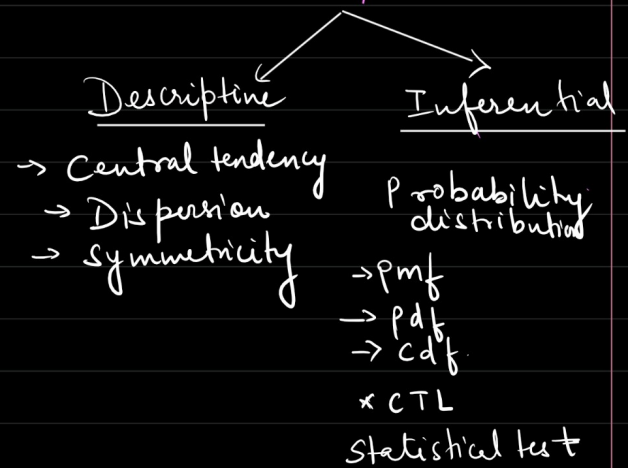 Descriptive
→ Central tendency
→ Dispersion
→ Symmetricity
Inferential
Probability
distribution
→ pmf
→ pdf
→ cdf.
* CTL
Statistical test